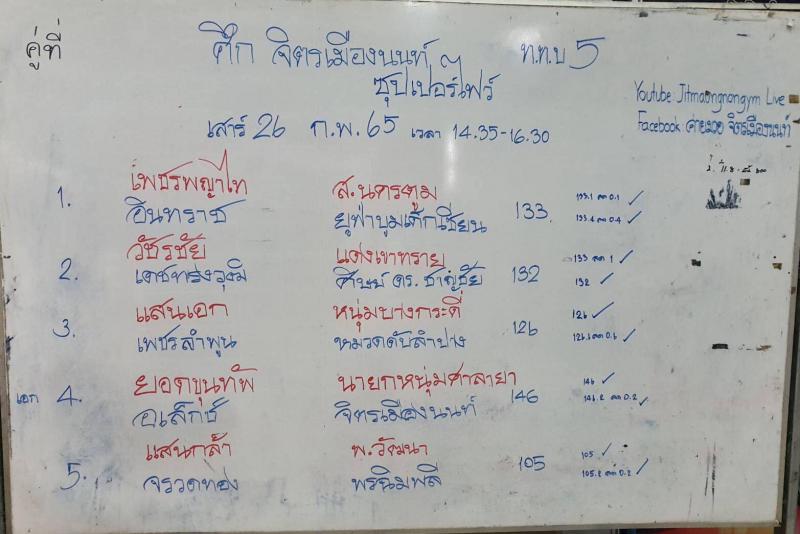 คู่ที่ ศึก จิตรเมืองนนท์ ท.ท.บ 5
ซุปเปอร์ไฟว์
Youtube: Jitmaongnongym Live
Facebook: ค่ายมวย จิตรเมืองนนท์
เสาร์ 26 ก.พ. 65 เวลา 14.35-16.30
1. เพชรพญาไท ส.นครตูม 133.1 ลด 0.1 ✓
อินทราช 133 133.4 ลด 0.4 ✓
2. วัชรชัย แดงเขาทราย 133 ลด 1 ✓
ศิษย์ ดร. ชาญชัย 132 132 ✓
3. แสนเอก หนุ่มบางกระดี่ 126 ✓
เพชรลำพูน หมวดดับลำปาง 126 126.6 ลด 0.6 ✓
เอก 4. ยอดขุนทัพ นายกหนุ่มศาลายา 146 ✓
อเล็กซ์ จิตรเมืองนนท์ 146 146.2 ลด 0.2 ✓
5. แสนกล้า พ.วัฒนา 105 ✓
จรวดทอง พรนิมพลี 105 105.2 ลด 0.2 ✓